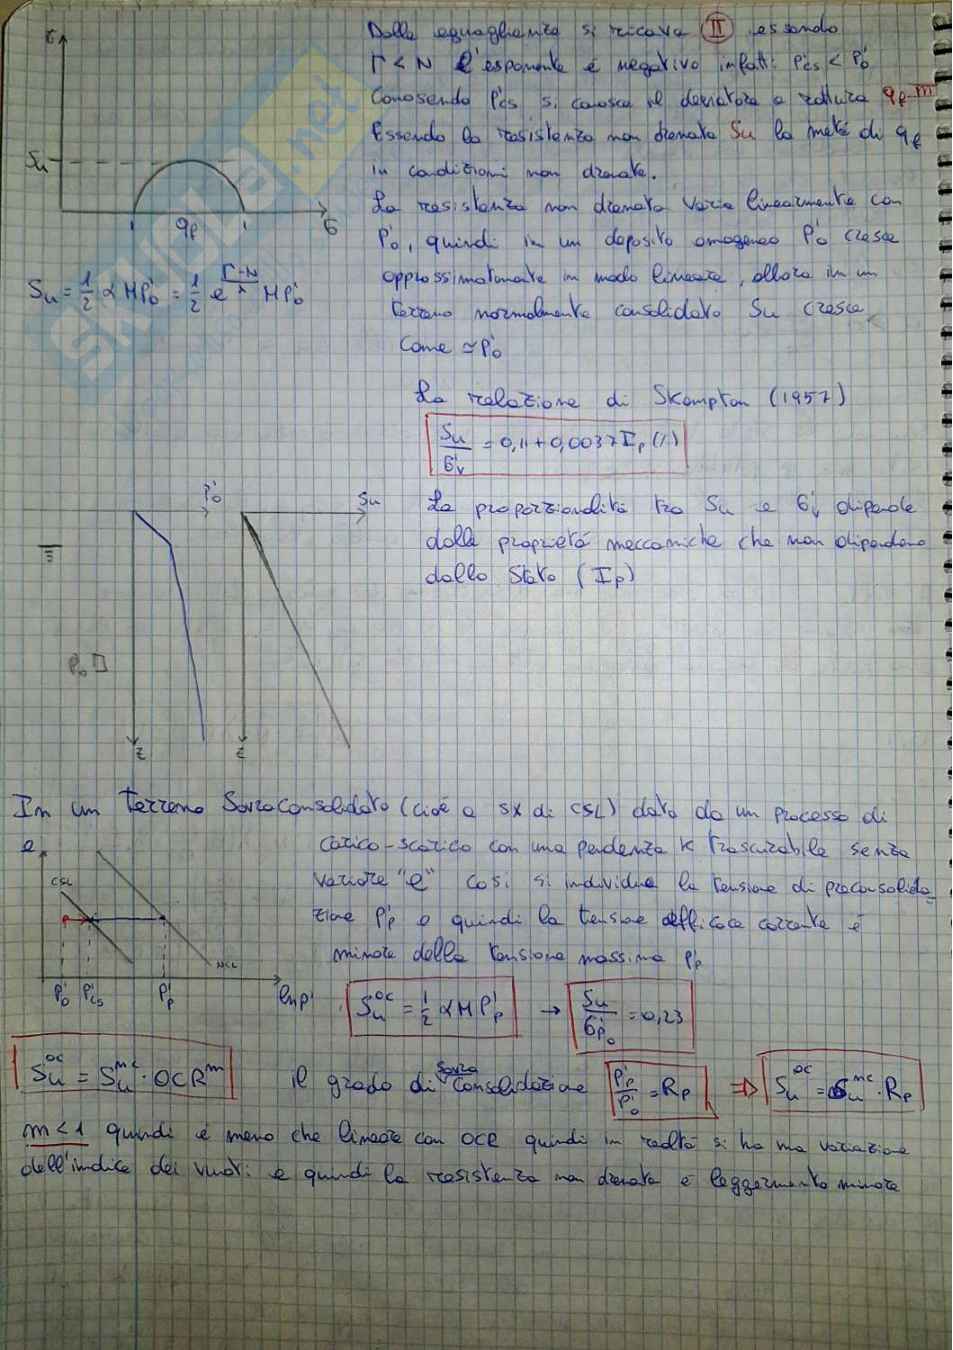 τ
Dalla eguaglianza si ricava II essendo
Γ < N l'esponente è negativo infatti P'cs < P'o
Conoscendo P'cs si conosce il deviatore a rottura qf III
Essendo la resistenza non drenata Su la metà di qf
in condizioni non drenate.
Su
qf
σ
La resistenza non drenata varia linearmente con
P'o, quindi in un deposito omogeneo P'o cresce
approssimatamente in modo lineare, allora in un
terreno normalmente consolidato Su cresce
come ≃ P'o
Su = 1/2 α M P'o = 1/2 e^((Γ-N)/λ) M P'o
SKUOLA.net
La relazione di Skempton (1957)
Su/σ'v = 0,11 + 0,0037 Ip (%)
P'o
Su
La proporzionalità tra Su e σ'v dipende
dalle proprietà meccaniche che non dipendono
dallo stato (Ip)
Po
z
z
In un terreno Sovraconsolidato (cioè a sx di CSL) dato da un processo di
carico-scarico con una pendenza K trascurabile senza
variare "e" così si individua la tensione di preconsolida-
zione P'p e quindi la tensione efficace corrente è
minore della tensione massima P'p
e
CSL
NCL
P'o P'cs P'p ln p'
Su^oc = 1/2 α M P'p → Su/σ'po = 0,23
Su^oc = Su^nc · OCR^m il grado di sovra consolidazione P'p/P'o = Rp ⇒ Su^oc = Su^nc · Rp
m < 1 quindi è meno che lineare con OCR quindi in realtà si ha una variazione
dell'indice dei vuoti e quindi la resistenza non drenata è leggermente minore